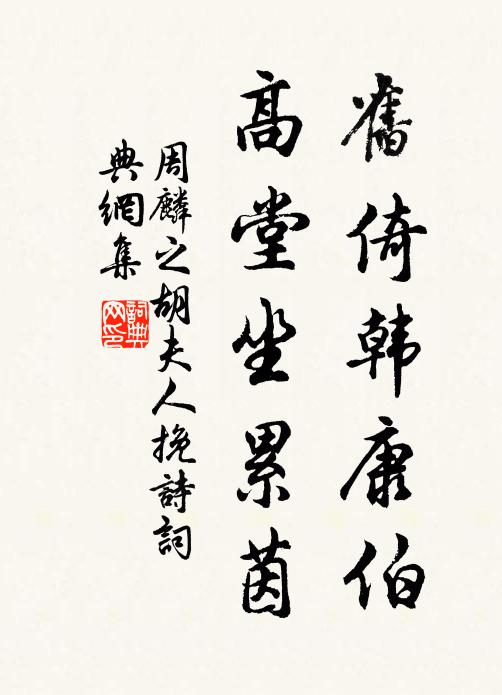 舊倚韩康伯
高堂坐累茵
周麟之胡夫人挽詩詞
典網集
詞典
网印